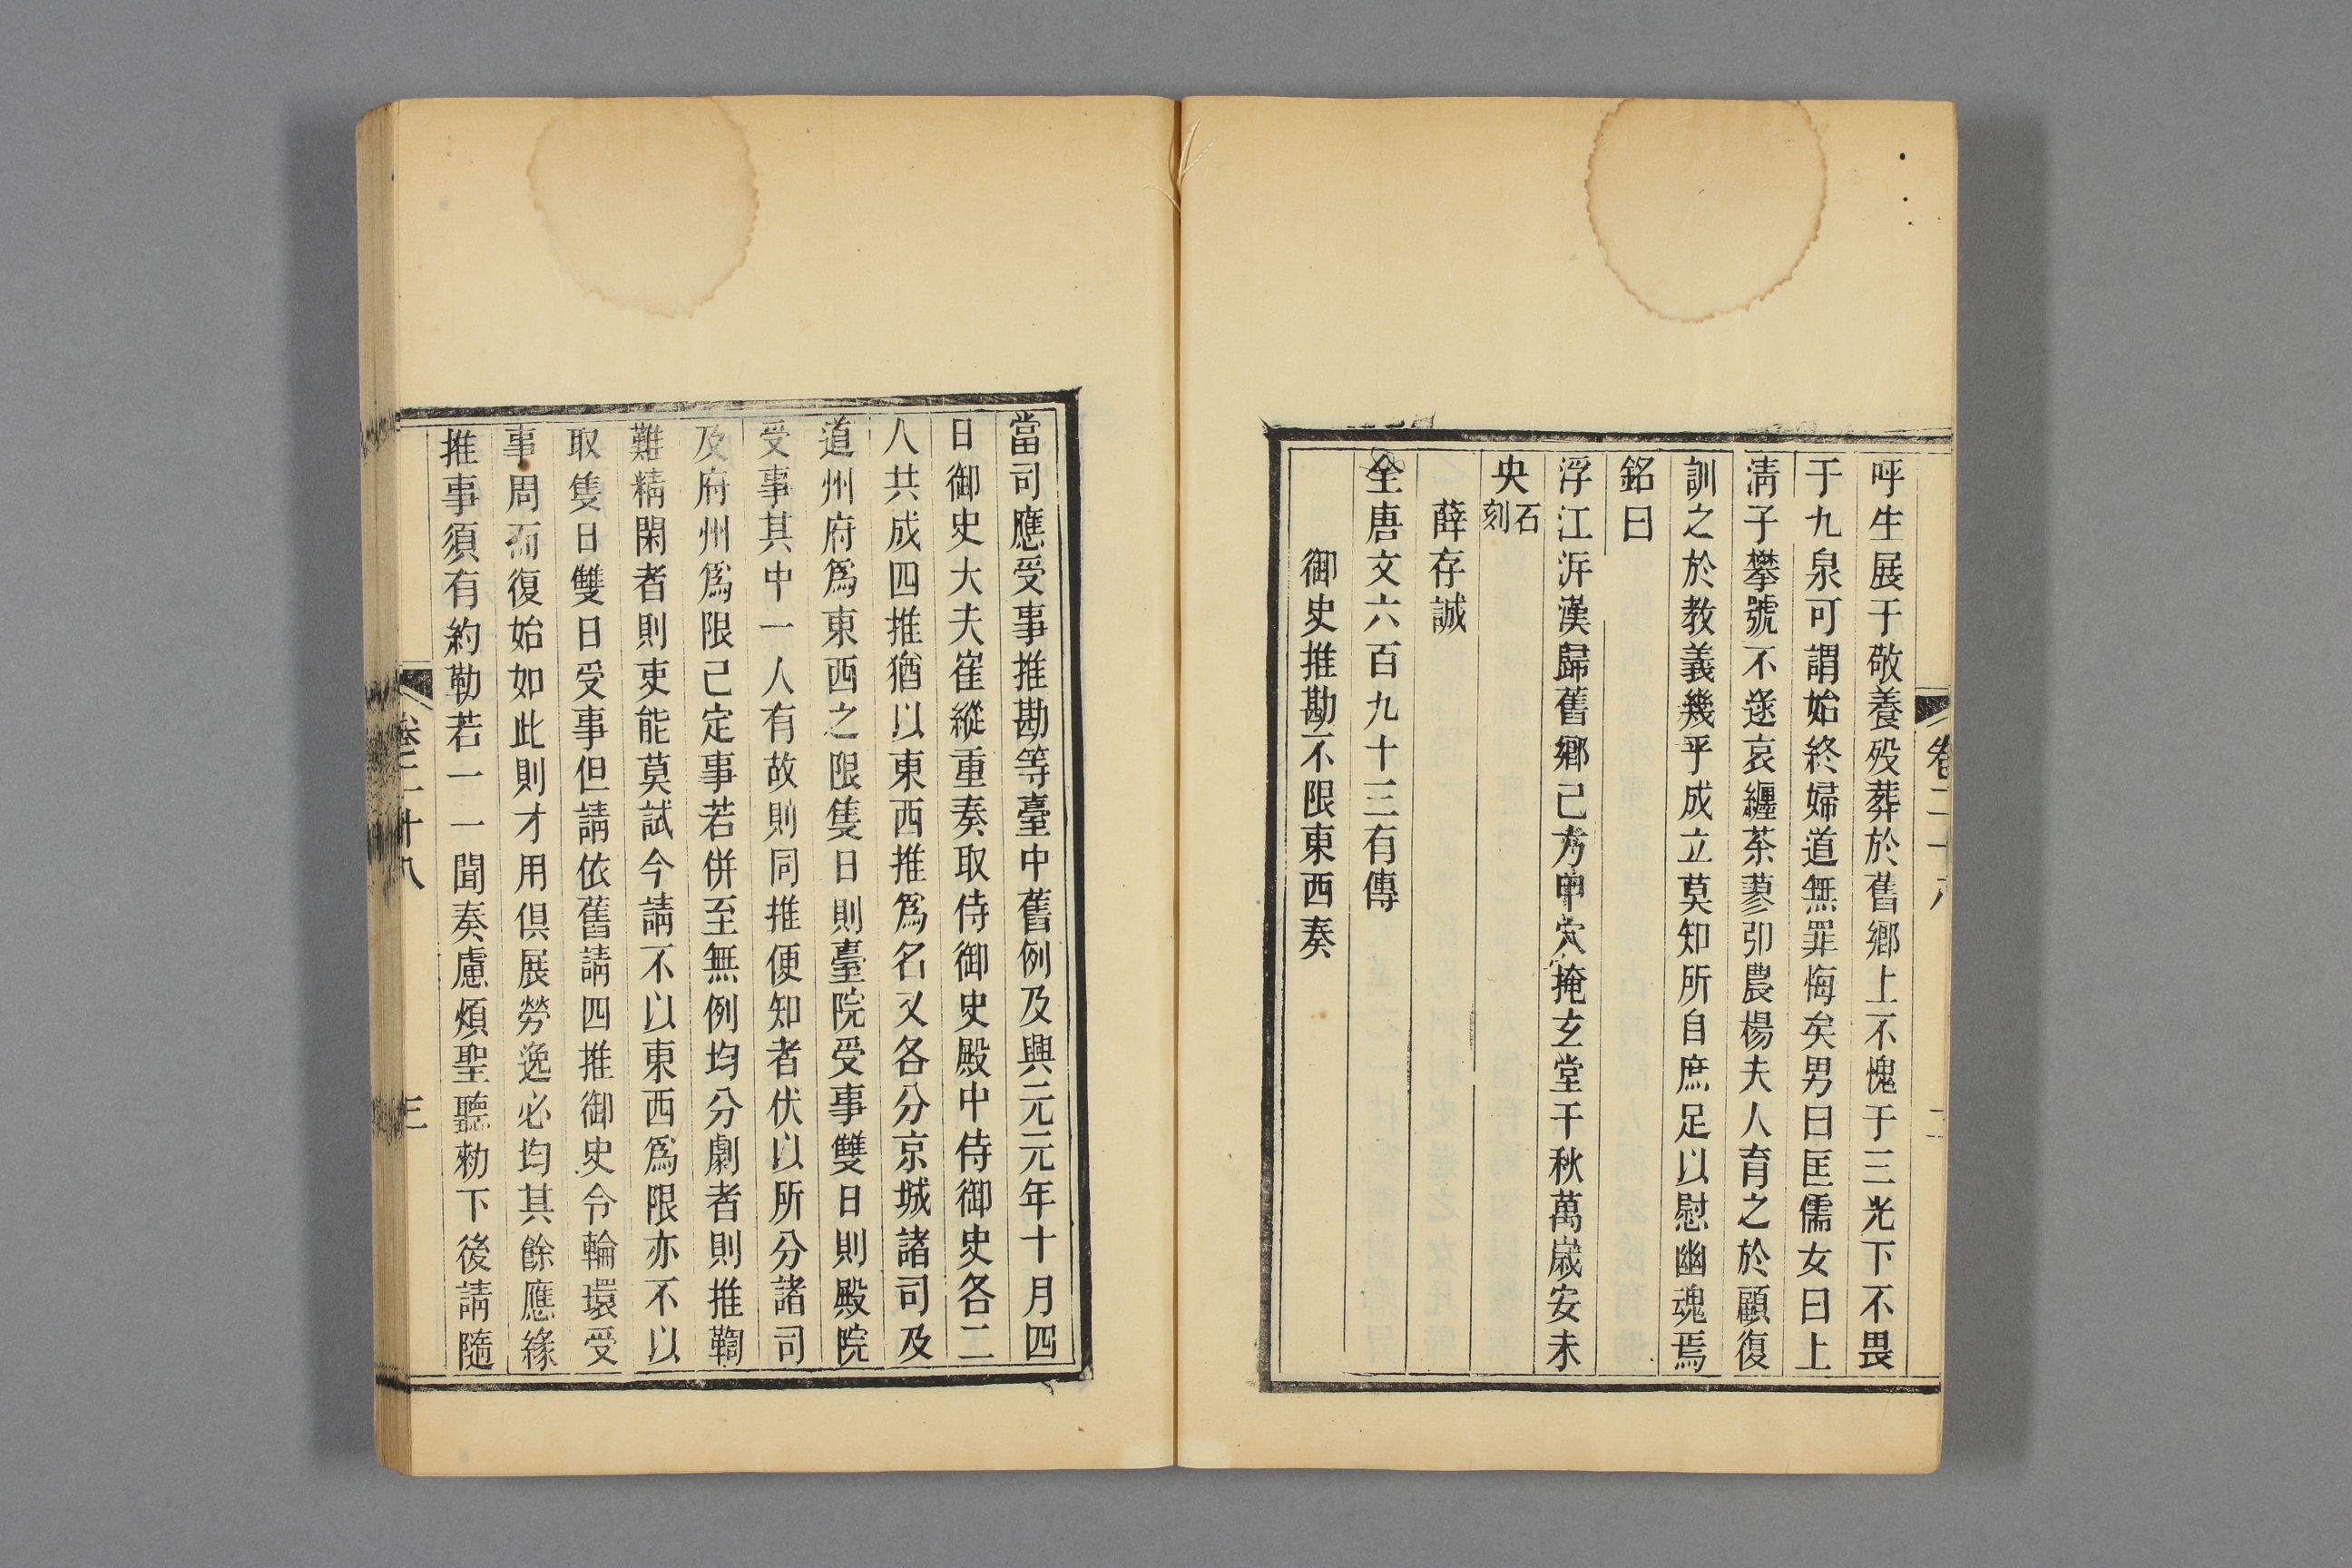 呼生展于敬養歿葬於舊鄉上不愧于三光下不畏
于九泉可謂始終婦道無罪悔矣男曰匡儒女曰上
淸子攀號不遂哀纏荼蓼卭農楊夫人育之於顧復
訓之於教義幾乎成立莫知所自庶足以慰幽魂焉
銘曰
浮江泝漢歸舊鄉己方甲穴掩玄堂千秋萬歲安未
央石刻
薛存誠
全唐文六百九十三有傳
御史推勘不限東西奏
當司應受事推勘等臺中舊例及興元元年十月四
日御史大夫崔縱重奏取侍御史殿中侍御史各二
人共成四推猶以東西推爲名又各分京城諸司及
道州府爲東西之限隻日則臺院受事雙日則殿院
受事其中一人有故則同推便知者伏以所分諸司
及府州爲限已定事若併至無例均分劇者則推鞫
難精閑者則吏能莫試今請不以東西爲限亦不以
取隻日雙日受事但請依舊請四推御史令輪環受
事周而復始如此則才用俱展勞逸必均其餘應緣
推事須有約勒若一一聞奏慮煩聖聽勅下後請隨
卷二十八
三